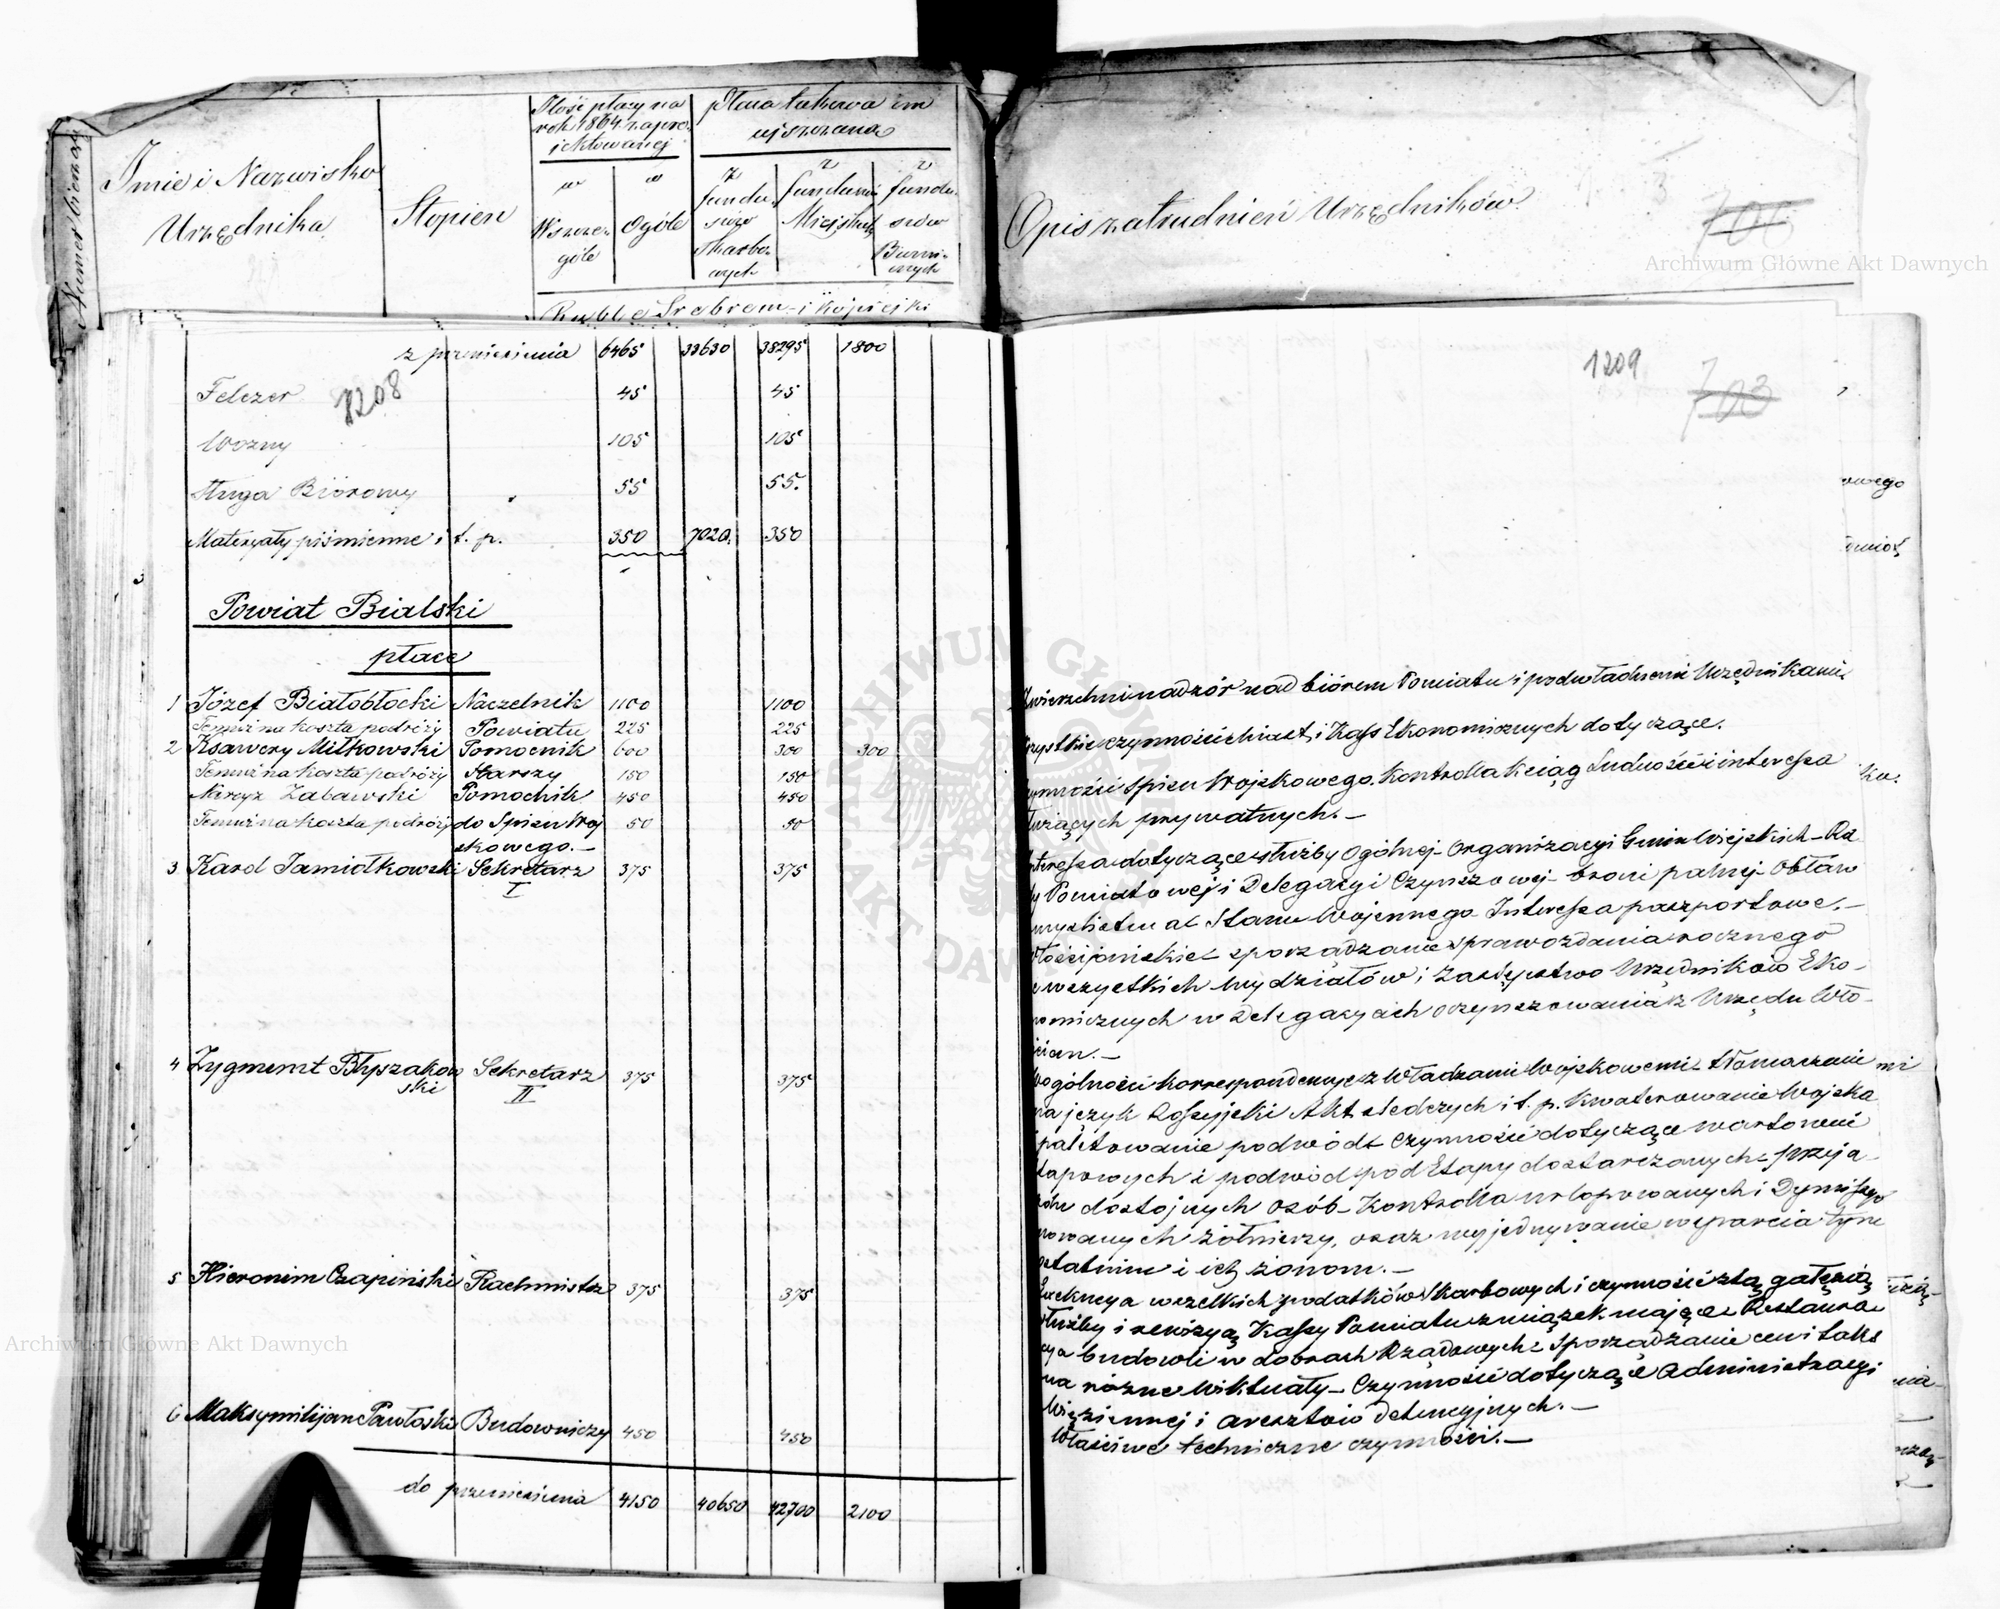 Numer bieżący
Imie i Nazwisko
Urzędnika
Stopień
Ilość płacy na
rok 1864 zapro-
jektowanej
w
Szcze-
góle
w
Ogóle
Płaca takowa im
uiszczana
z
fundu-
szów
Skarbo-
wych
z
funduszów
Miejskich
z
fundu-
szów
Ruble Srebrem i Kopiejki
Opis zatrudnień Urzędników
706
Archiwum Główne Akt Dawnych
z przeniesienia 6465 33630 38295 1800
1208
Felczer 45 45
Woźny 105 105
Sługa Biórowy 55 55.
Materyały piśmienne i t. p. 350 7020. 350
Powiat Bialski
płace
1 Józef Białobłocki Naczelnik 1100 1100
Temuż na koszta podróży Powiatu 225 225
2 Ksawery Miłkowski Pomocnik 600 300 300
Temuż na koszta podróży Starszy 150 150
Narcyz Zabawski Pomocnik 450 450
Temuż na koszta podróży do Spisu Woj 50 50
skowego.—
3 Karol Jamiołkowski Sekretarz 375 375
I
4 Zygmunt Błyszakow Sekretarz 375 375
ski II
5 Hieronim Czapiński Rachmistrz 375 375
6 Maksymilijan Pawłoski Budowniczy 450 450
do przeniesienia 4150 40650 42700 2100
1209
703
Zwierzchni nadzór nad biórem Powiatu i podwładnemi Urzędnikami.
wszystkie czynności Miast i Kass Ekonomicznych dotyczące.
czynności Spisu Wojskowego. Kontrolla Ksiąg Ludności i interessa
służących prywatnych.—
Interessa dotyczące służby Ogólnej - Organizacyi Gmin Wiejskich - Ra
dy Powiatowej i Delegacyi Czynszowej - broni palnej - Obław
Stanu Wojennego Interessa paszportowe.—
Włościjańskie - sporządzanie sprawozdania rocznego
z wszystkich wydziałów i Zastępstwo Urzędników Eko-
nomicznych w Delegacyach oczynszowania z Urzędu Wło-
ścian.—
W ogólności korrespondencye z Władzami Wojskowemi - tłomaczenie
na język Rossyjski Akt śledczych i t. p. Kwaterowanie Wojska
podwód - Czynności dotyczące wartowni
etapowych i podwód pod Etapy dostarczanych - przeja-
zdu dostojnych osób - Kontrolla urlopowanych i Dymissyo
nowanych żołnierzy, oraz wyjednywanie wsparcia tym
ostatnim i ich żonom.—
wszelkich podatków Skarbowych i czynności z tą gałęzią
służby i rewizyą Kassy Powiatu związek mające - Restaura-
cya budowli w dobrach Rządowych - Sporządzanie cen i taks
na różne Wiktuały - Czynności dotyczące Administracyi
Więziennej i aresztów detencyjnych.—
Właściwe techniczne czynności.—
ARCHIWUM GŁÓWNE AKT DAWNYCH
Archiwum Główne Akt Dawnych